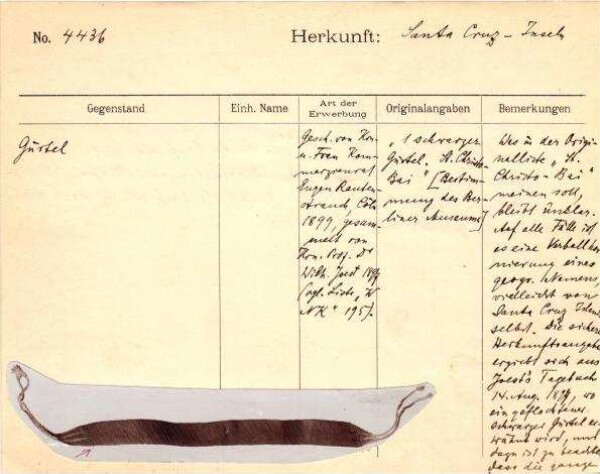 No. 4436
Herkunft: Santa Cruz - Inseln
Gegenstand
Einh. Name
Art der
Erwerbung
Originalangaben
Bemerkungen
Gürtel
Gesch. von Hrn
u. Frau Kom-
merzienrat
Eugen Rauten-
strauch, Cöln
1899, gesam-
melt von
Hrn. Prof. Dr
Wilh. Joest 1897
(vgl. Liste "W
195).
"1 schwarzer
Gürtel. St. Christo-
Bai" [Bestim-
mung des Ber-
liner Museums]
Was in der Origi-
nalliste "St.
Christo-Bai"
meinen soll,
bleibt unklar.
Auf alle Fälle ist
es eine Verballhor-
nisierung eines
geogr. Namens,
vielleicht von
Santa Cruz Island
selbst. Die sichere
Herkunftsangabe
ergiebt sich aus
Joest's Tagebuch
14. Aug. 1897, wo
ein geflochtener
schwarzer Gürtel er-
wähnt wird, und
dazu ist zu beachten
dass die ganze